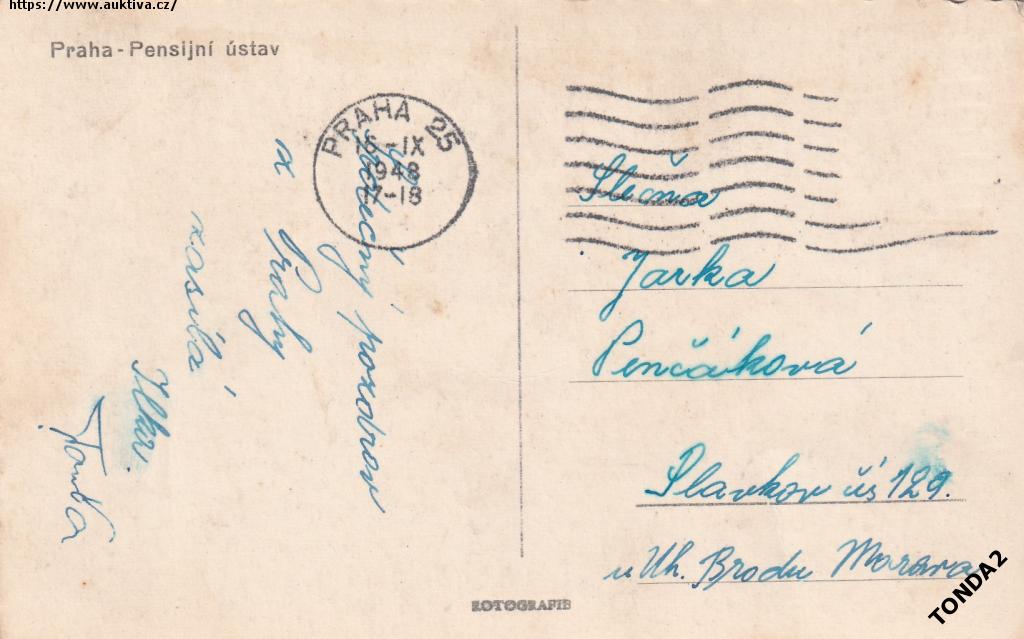 https://www.auktiva.cz/
Praha - Pensijní ústav
PRAHA 25
16.-IX
1948
17-18
Srdečný pozdrav
z Prahy
zasílá
Slečna
Jarka
Penčáková
Slavkov čís 129.
u Uh. Brodu Morava
ROTOGRAFIE
TONDA2